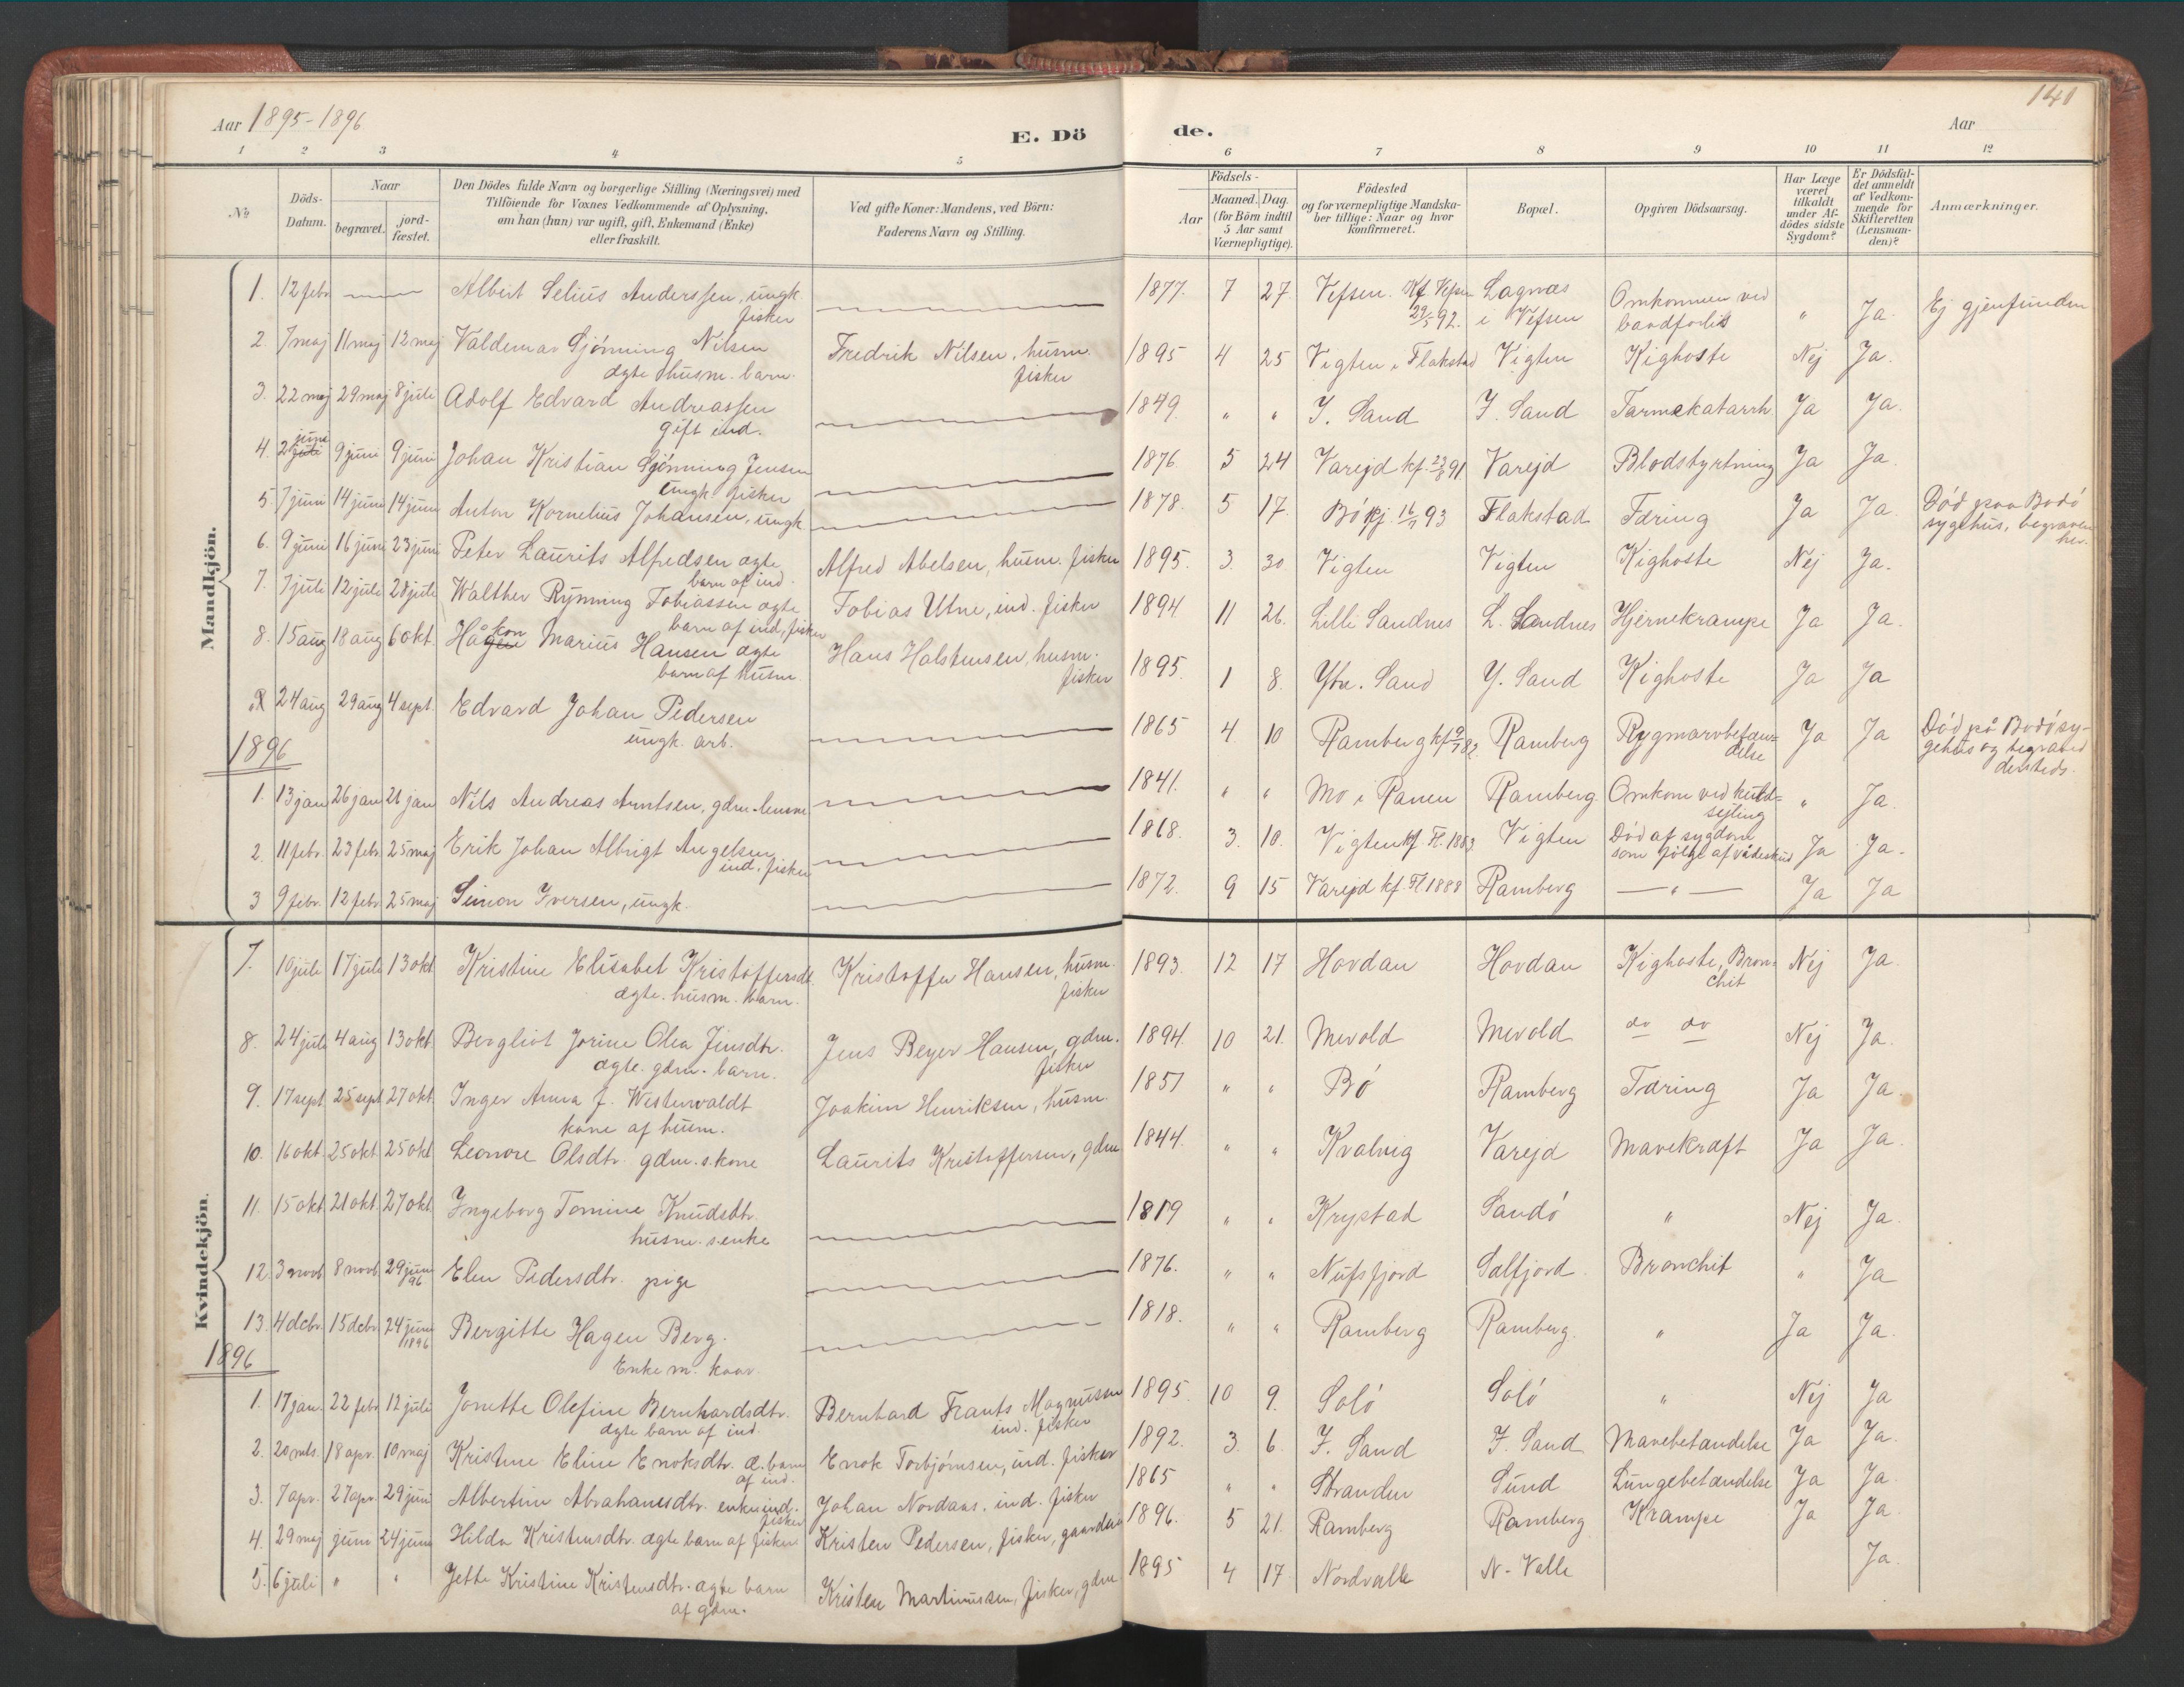 141
Aar 1895-1896
E. Dö
de.
Aar
1 2 3 4 5 6 7 8 9 10 11 12
No
Döds-Datum.
Naar
begravet.
jord-fæstet.
Den Dödes fulde Navn og borgerlige Stilling (Næringsvei) med
Tilföiende for Voxnes Vedkommende af Oplysning,
om han (hun) var ugift, gift, Enkemand (Enke)
eller fraskilt.
Ved gifte Koner: Mandens, ved Börn:
Faderens Navn og Stilling.
Födsels-
Aar
Maaned. Dag.
(for Börn indtil
5 Aar samt
Værnepligtige).
Födested
og for værnepligtige Mandska-
ber tillige: Naar og hvor
konfirmeret.
Bopæl.
Opgiven Dödsaarsag.
Har Læge
været
tilkaldt
under Af-
dödes sidste
Sygdom?
Er Dödsfal-
det anmeldt
af Vedkom-
mende for
Skifteretten
(Lensman-
den)?
Anmærkninger.
Mandkjön.
1. 12 febr — Albert Selius Anderssen, ungk. fisker — 1877. 7 27 Vefsen. Kf. Vefsen 29/5 92. Lagnæs i Vefsen Omkommen ved baadforlis " Ja. Ej gjenfunden
2. 7 maj 11 maj 12 maj Valdemar Gjønning Nilsen ægte husm. barn. Fredrik Nilsen, husm. fisker 1895 4 25 Vigten i Flakstad Vigten Kighoste Nej Ja.
3. 22 maj 29 maj 8 juli Adolf Edvard Andreassen gift ind. — 1849. " " I. Sand I. Sand Tarmekatarrh Ja Ja.
4. 2 juni 9 juni 9 juni Johan Kristian Gjønning Jensen ungk. fisker — 1876. 5 24 Varejd kf. 91 Varejd Blodstyrtning Ja Ja.
5 7 juni 14 juni 14 juni Anton Kornelius Johansen, ungk — 1878. 5 17. Bö kf. 16/7 93 Flakstad Tæring Ja Ja. Död paa Bodö sygehus, begraven her.
6. 9 juni 16 juni 23 juni Peter Laurits Alfredsen ægte barn af ind. Alfred Abelsen, husm. fisker 1895. 3. 30. Vigten Vigten Kighoste Nej Ja.
7. 7 juli 12 juli 28 juli Walther Rynning Tobiassen ægte barn af ind, fisker Tobias Utne, ind. fisker 1894 11 26. Lille Sandnes L. Sandnes Hjernekrampe Ja Ja.
8. 15 aug 18 aug 6 okt. Håkon Marius Hansen ægte barn af husm. Hans Halstensen, husm. fisker 1895. 1 8. Ytre. Sand Y. Sand Kighoste Ja Ja
9. 24 aug 29 aug 4 sept. Edvard Johan Pedersen ungk. arb. — 1865 4 10 Ramberg kf 9/7 82. Ramberg Rygmarvbetæn-delse Ja Ja Död på Bodö sy-gehus og begraved dersteds.
1896
1. 13 jan 26 jan 26 jan Nils Andreas Arntsen, gdm. — 1841. " " Mo i Ranen Ramberg. Omkom ved kuld-sejling " Ja.
2. 11 febr. 23 febr. 25 maj Erik Johan Albrigt Angelsen ind. fisker — 1868. 3. 10. Vigten kf. Fl. 1883. Vigten Död af sygdom som fölge af vådeskud Ja Ja.
3 9 febr. 12 febr. 25 maj Simon Iversen, ungk. — 1872. 9 15 Varejd kf. Fl 1888 Ramberg — " — Ja Ja
Kvindekjön.
7. 10 juli 17 juli 13 okt Kristine Elisabet Kristoffersdt. ægte. husm. barn. Kristoffer Hansen, husm. fisker 1893. 12 17 Hovdan Hovdan Kighoste, Bron-chit Nej Ja.
8. 24 juli 4 aug 13 okt. Bergliot Jorine Olea Jensdtr. ægte. gdm. barn. Jens Beyer Hansen, gdm. fisker 1894. 10 21. Mevold Mevold do do Nej Ja.
9. 17 sept. 25 sept 27 okt. Inger Anna f. Westerwaldt kone af husm. Joakim Henriksen, husm. 1851 " " Bö Ramberg Tæring Ja Ja.
10. 16 okt. 25 okt. 25 okt Leonore Olsdtr. gdm.s kone Laurits Kristoffersen, gdm 1844. " " Kvalvig Varejd Mavekræft Ja Ja.
11. 15 okt. 21 okt. 27 okt Ingeborg Tomine Knudsdtr. husm.s enke — 1819 " " Krystad Sandö " Nej Ja.
12. 3 novb. 8 novb. 29 juni 96 Elen Pedersdtr. pige — 1876. " " Nufsfjord Selfjord Bronchit " Ja
13. 4 dcbr. 15 dcbr. 24 juni 1896 Bergitte Hagen Berg. Enke m. kaar. — 1818. " " Ramberg Ramberg. " Ja Ja.
1896
1. 17 jan. 22 febr. 12 juli Jonette Olefine Bernhardsdtr. ægte barn af ind. Bernhard Frants Magnussen ind. fisker 1895. 10 9. Solö Solö " Nej Ja
2. 20 mts. 18 apr. 10 maj Kristine Eline Enoksdtr. æ. barn af ind. Enok Torbjörnsen, ind. fisker 1892. 3. 6. I. Sand I. Sand Mavebetændelse Ja Ja.
3. 7 apr. 27 apr. 29 juni Albertine Abrahamsdtr. enke ind. fisker Johan Nordaas. ind. fisker 1865 " " Stranden Sund Lungebetændelse Ja Ja.
4. 29 maj juni 24 juni Hilda Kristensdtr. ægte barn af fisker Kristen Pedersen, fisker, 1896. 5 21. Ramberg Ramberg Krampe Ja Ja.
5. 6 juli " " Jette Kristine Kristensdtr. ægte barn af gdm. Kristen Martinussen, fisker, gdm 1895 4 17 Nordvalle N. Valle Ja.